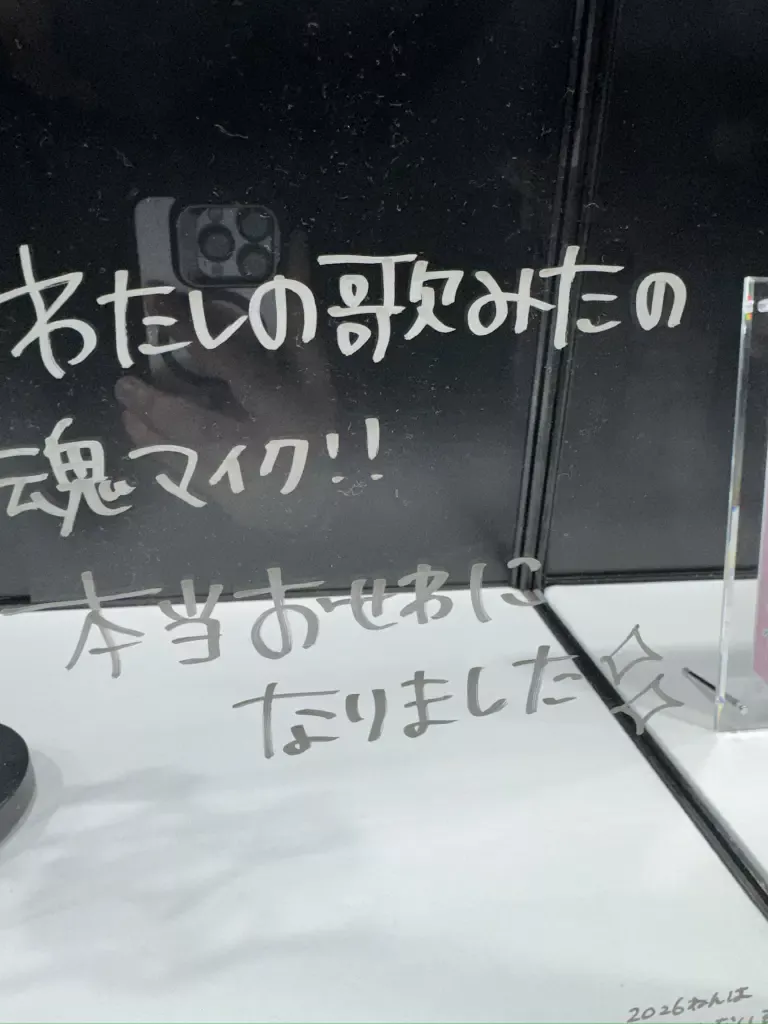 わたしの歌みたの
魂マイク!!
本当おせわに
なりました☆☆
2026ねんは